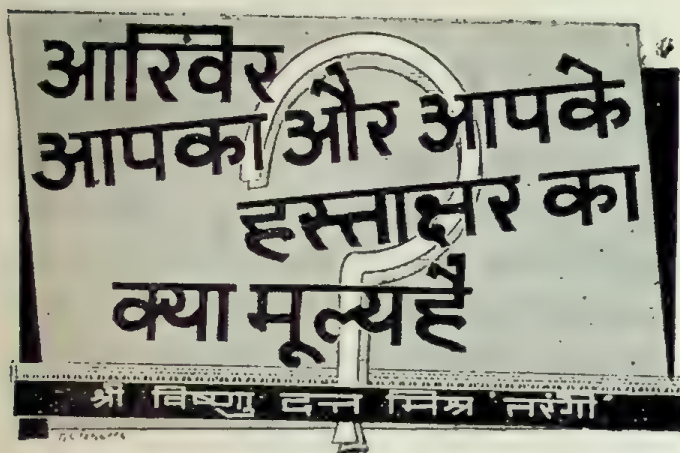 आखिर
आपका और आपके
हस्ताक्षर का
क्या मूल्य है
श्री विष्णु दत्त मिश्र 'तरंगी'